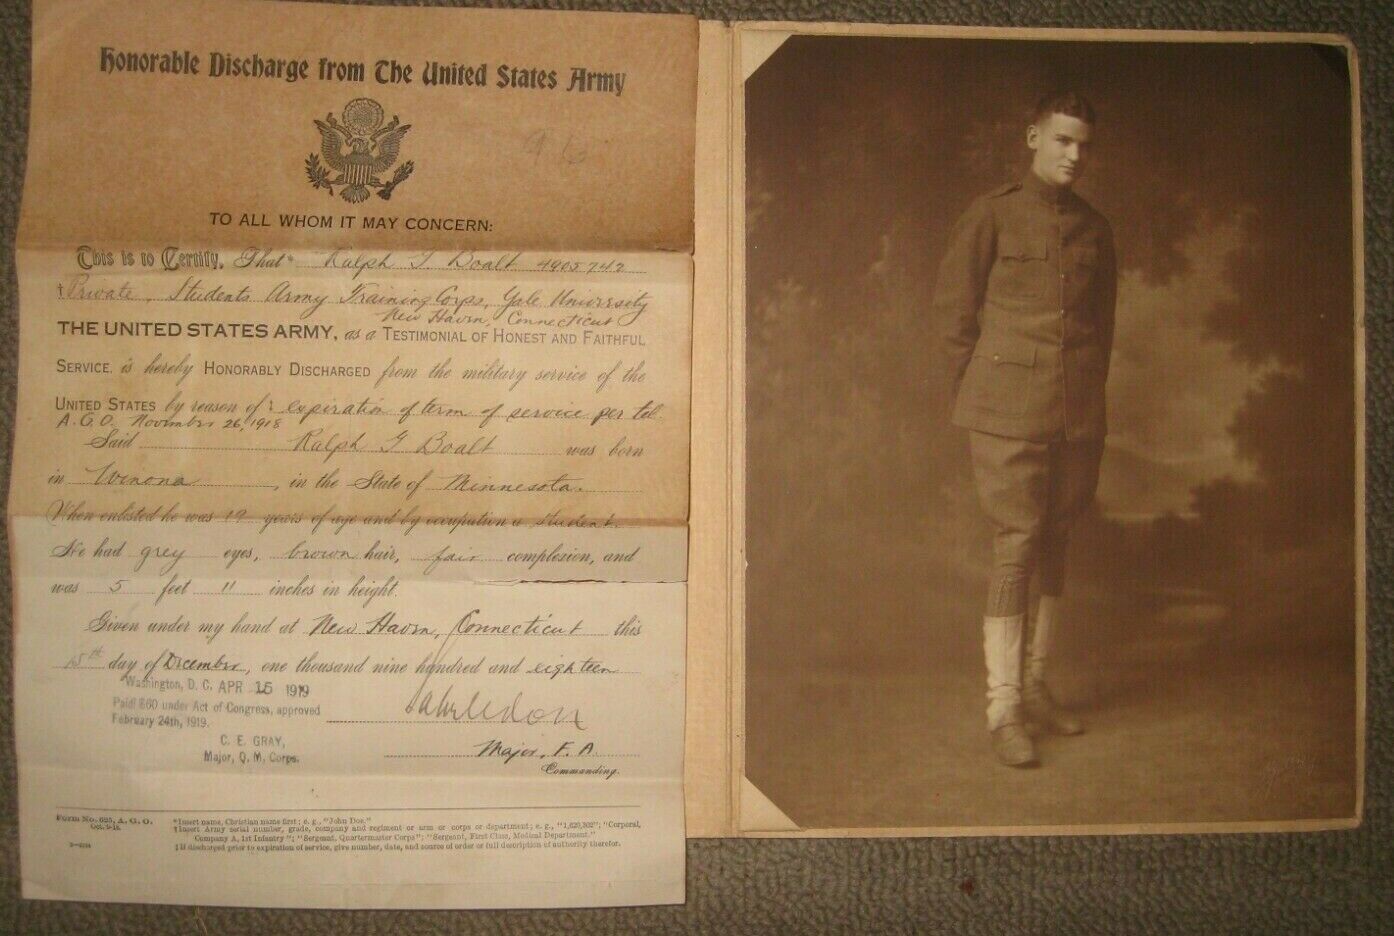 Honorable Discharge from The United States Army
96
TO ALL WHOM IT MAY CONCERN:
This is to Certify, That* Ralph G Boalt 4905742
†Private, Students Army Training Corps, Yale University
New Haven, Connecticut
THE UNITED STATES ARMY, as a TESTIMONIAL OF HONEST AND FAITHFUL
SERVICE, is hereby HONORABLY DISCHARGED from the military service of the
UNITED STATES by reason of‡ expiration of term of service per tel.
A.G.O. November 26, 1918
Said Ralph G Boalt was born
in Winona, in the State of Minnesota.
When enlisted he was 19 years of age and by occupation a student.
He had grey eyes, brown hair, fair complexion, and
was 5 feet 11 inches in height.
Given under my hand at New Haven, Connecticut this
15th day of December, one thousand nine hundred and eighteen
Washington, D. C. APR 15 1919
Paid $60 under Act of Congress, approved
February 24th, 1919.
C. E. GRAY,
Major, Q. M. Corps.
Major, F. A.
Commanding.
Form No. 525, A. G. O.
Oct. 9-18.
*Insert name, Christian name first; e. g., "John Doe."
†Insert Army serial number, grade, company and regiment or arm or corps or department; e. g., "1,620,302"; "Corporal,
Company A, 1st Infantry"; "Sergeant, Quartermaster Corps"; "Sergeant, First Class, Medical Department."
‡If discharged prior to expiration of service, give number, date, and source of order or full description of authority therefor.